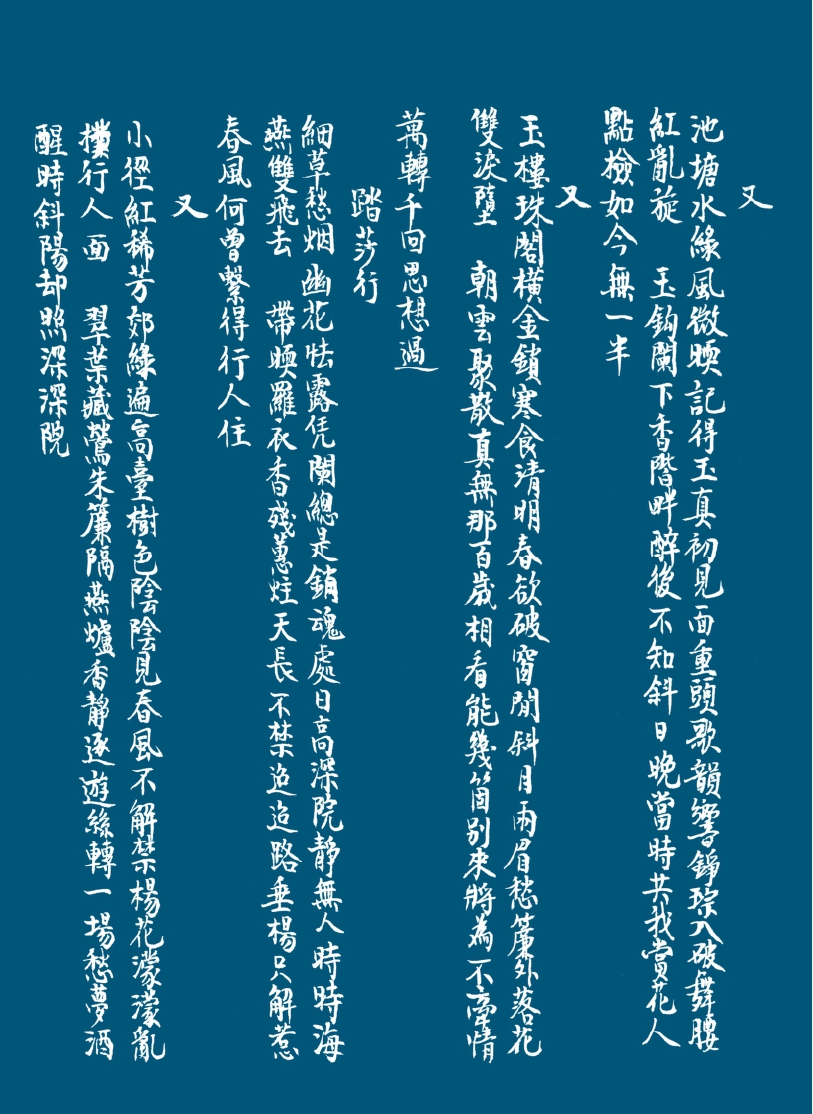 又
池塘水綠風微暖記得玉真初見面重頭歌韻響錚琮入破舞腰
紅亂旋　玉鈎闌下香階畔醉後不知斜日晚當時共我賞花人
點檢如今無一半
又
玉樓珠閣橫金鎖寒食清明春欲破窗間斜月兩眉愁簾外落花
雙淚墮　朝雲聚散真無那百歲相看能幾箇別來將為不牽情
萬轉千回思想過
踏莎行
細草愁烟幽花怯露凭闌總是銷魂處日高深院靜無人時時海
燕雙飛去　帶暖羅衣香殘蕙炷天長不禁迢迢路垂楊只解惹
春風何曾繫得行人住
又
小徑紅稀芳郊綠遍高臺樹色陰陰見春風不解禁楊花濛濛亂
撲行人面　翠葉藏鶯朱簾隔燕爐香靜逐遊絲轉一場愁夢酒
醒時斜陽却照深深院